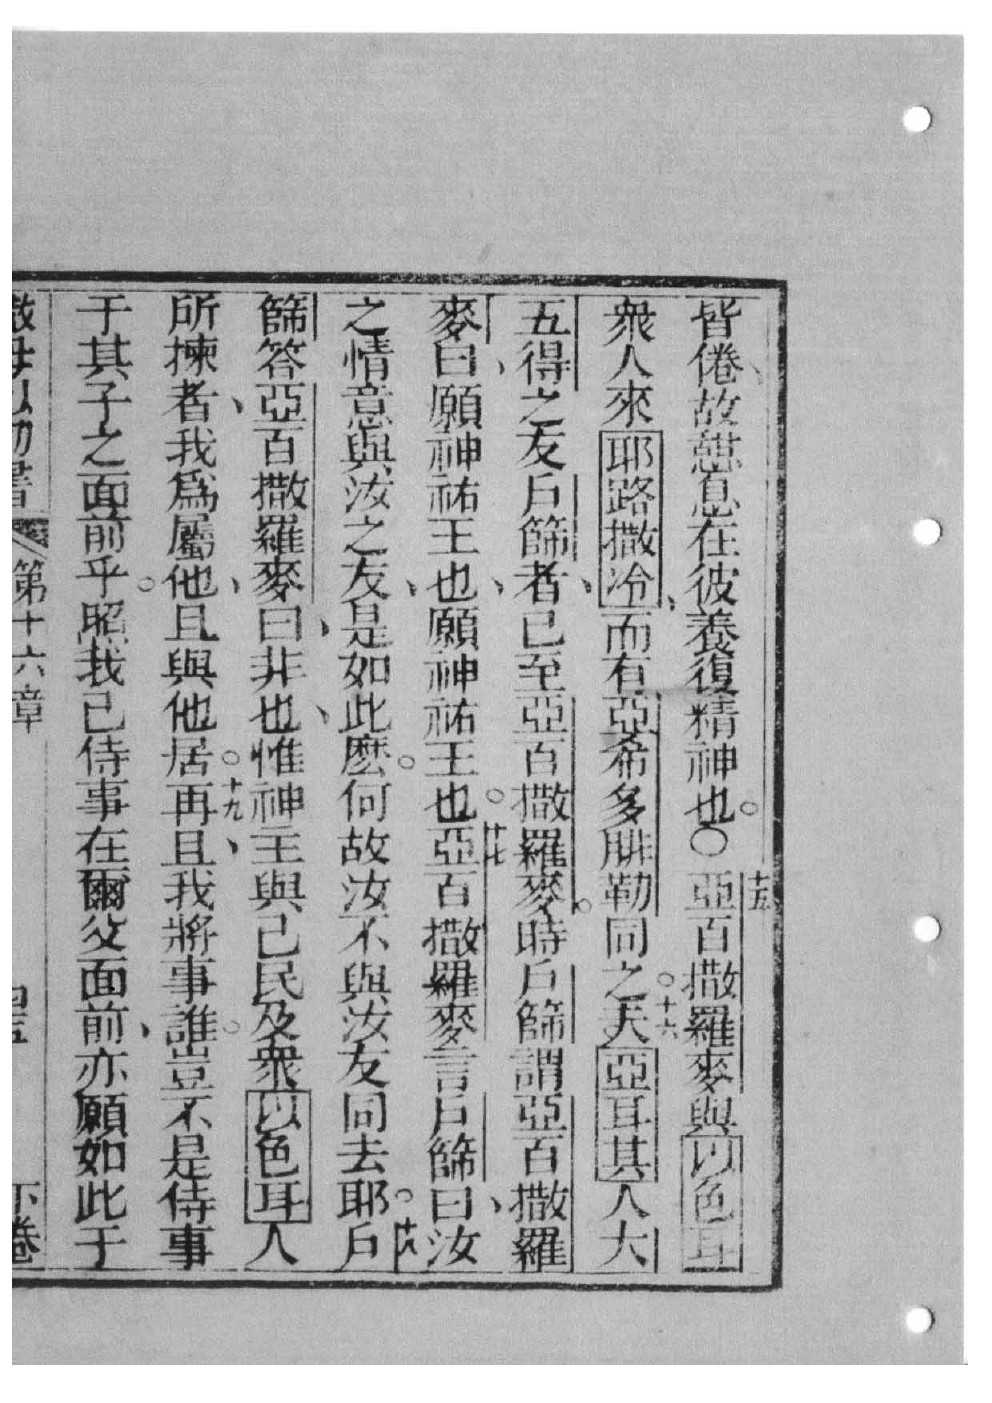 皆倦故憇息在彼養復精神也。○十五亞百撒羅麥與以色耳
衆人來耶路撒冷、而有亞希多腓勒同之。十六夫亞耳其人大
五得之友戶篩者、已至亞百撒羅麥。時戶篩謂亞百撒羅
麥曰、願神祐王也、願神祐王也。十七亞百撒羅麥言戶篩曰、汝
之情意與汝之友、是如此麽。何故汝不與汝友同去耶。十八戶
篩答亞百撒羅麥曰、非也、惟神主與己民及衆以色耳人
所揀者、我爲屬他、且與他居。十九再且、我將事誰。豈不是侍事
于其子之面前乎。照我已侍事在爾父面前、亦願如此于
第十六章
下卷